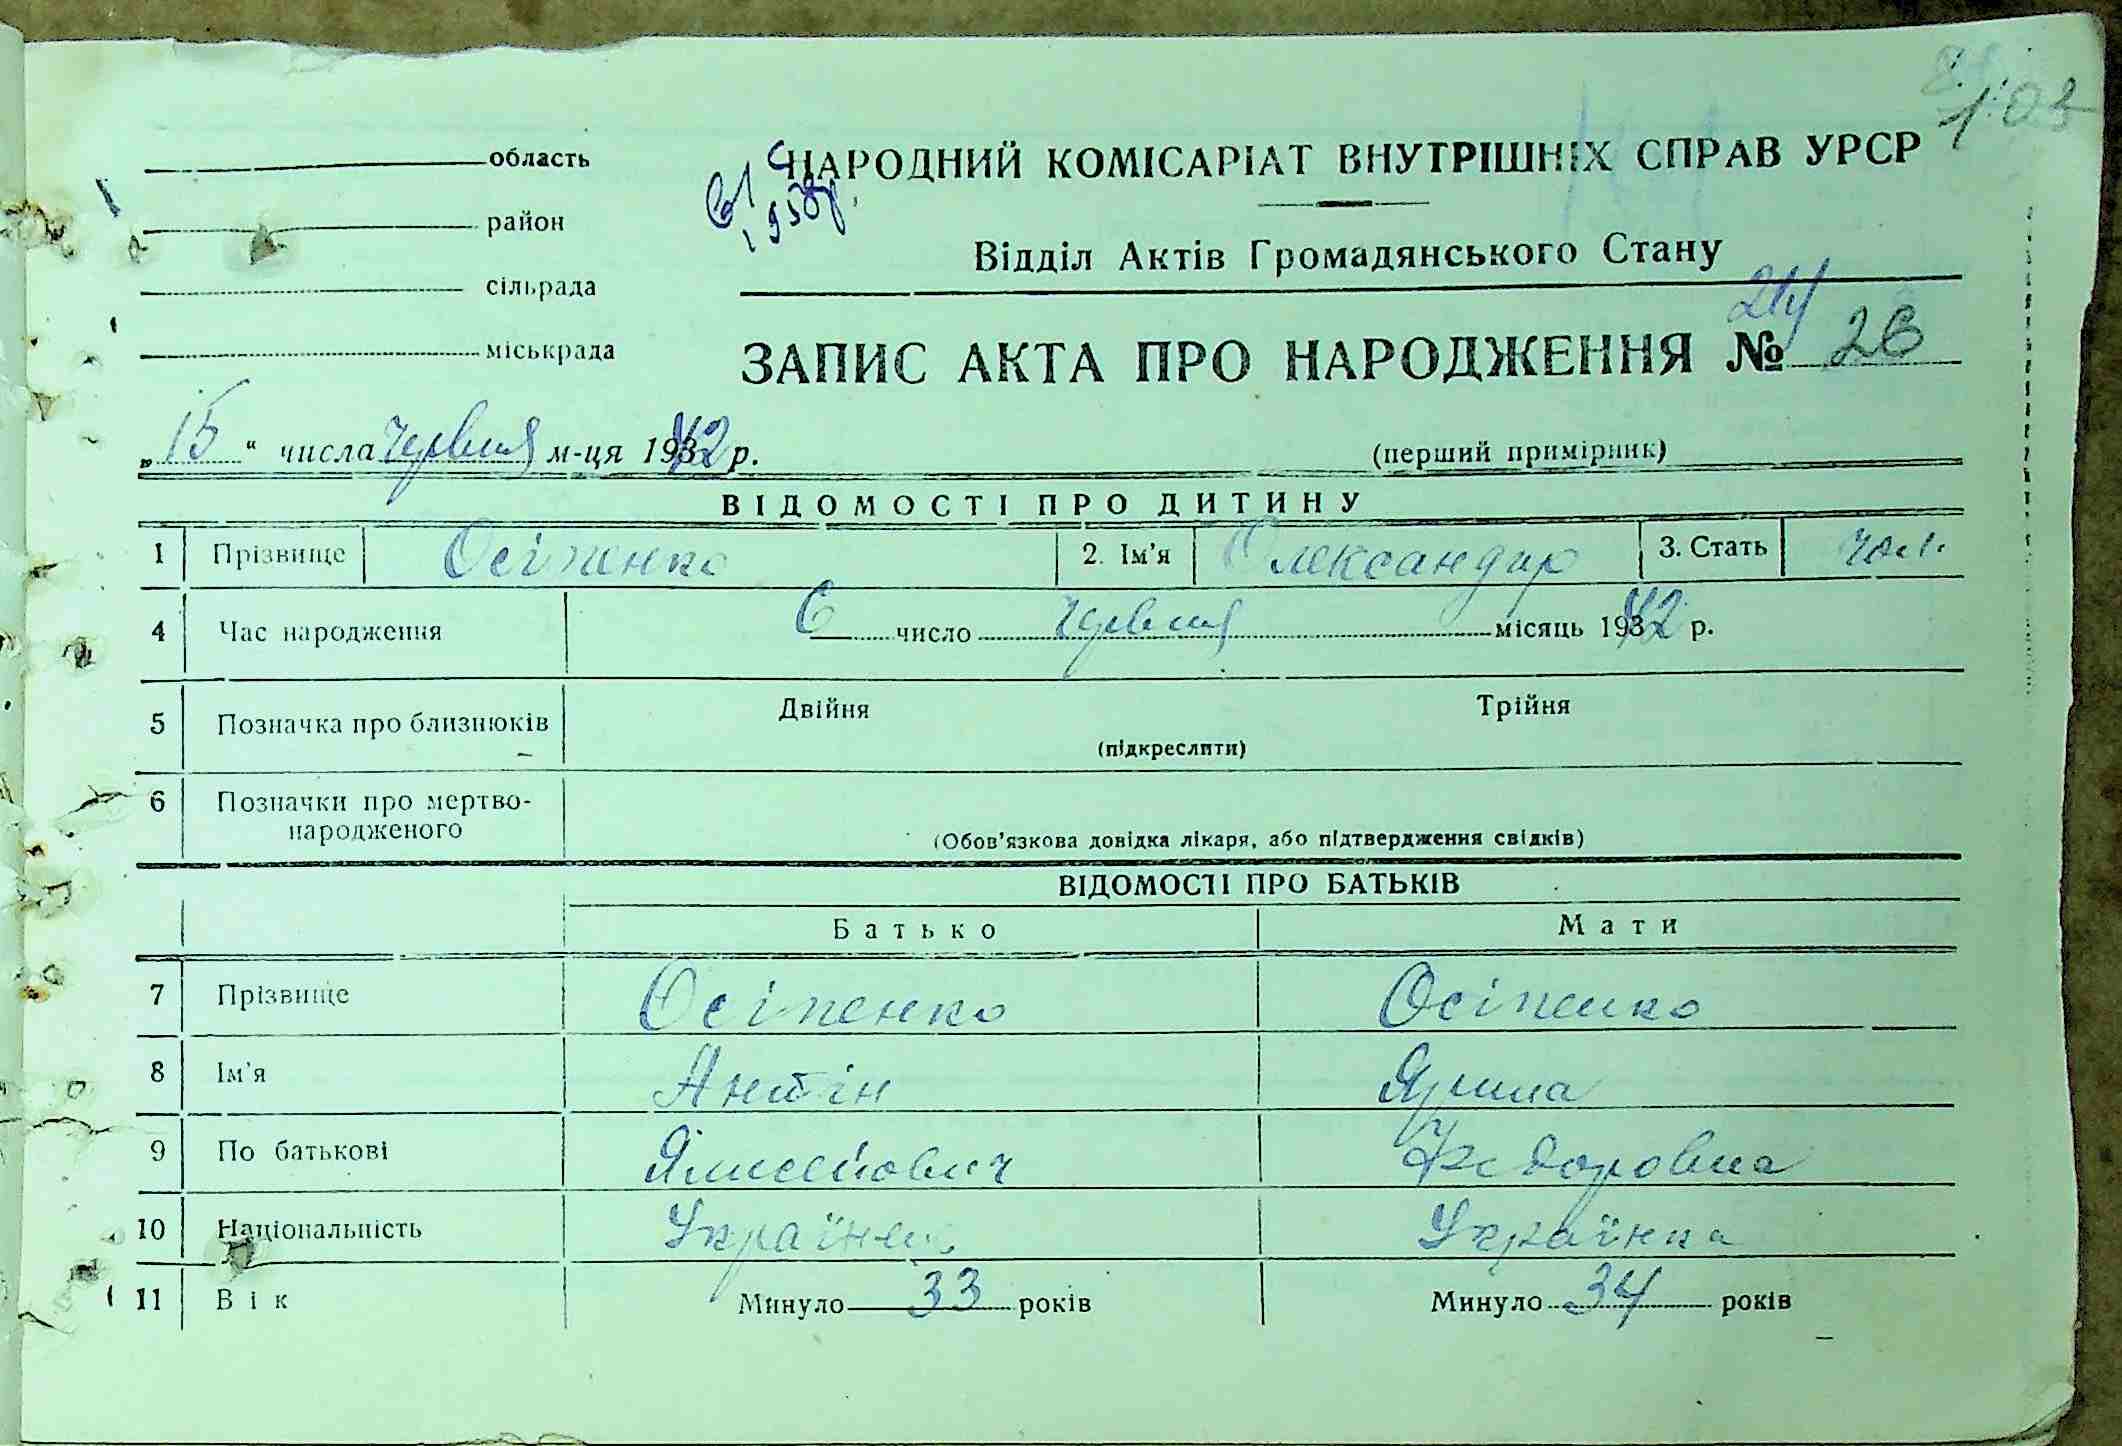 103
область
НАРОДНИЙ КОМІСАРІАТ ВНУТРІШНІХ СПРАВ УРСР
район
Відділ Актів Громадянського Стану
сільрада
міськрада
ЗАПИС АКТА ПРО НАРОДЖЕННЯ № 26
„15“ числа Червня м-ця 1942 р.
(перший примірник)
ВІДОМОСТІ ПРО ДИТИНУ
1 Прізвище Осіпенко 2. Ім'я Олександр 3. Стать чол.
4 Час народження 6 число Червня місяць 1942 р.
5 Позначка про близнюків Двійня Трійня
(підкреслити)
6 Позначки про мертво-
народженого
(Обов'язкова довідка лікаря, або підтвердження свідків)
ВІДОМОСТІ ПРО БАТЬКІВ
Батько Мати
7 Прізвище Осіпенко Осіпенко
8 Ім'я Антін Ярина
9 По батькові Федоровна
10 Національність Українець Українка
11 Вік Минуло 33 років Минуло 34 років